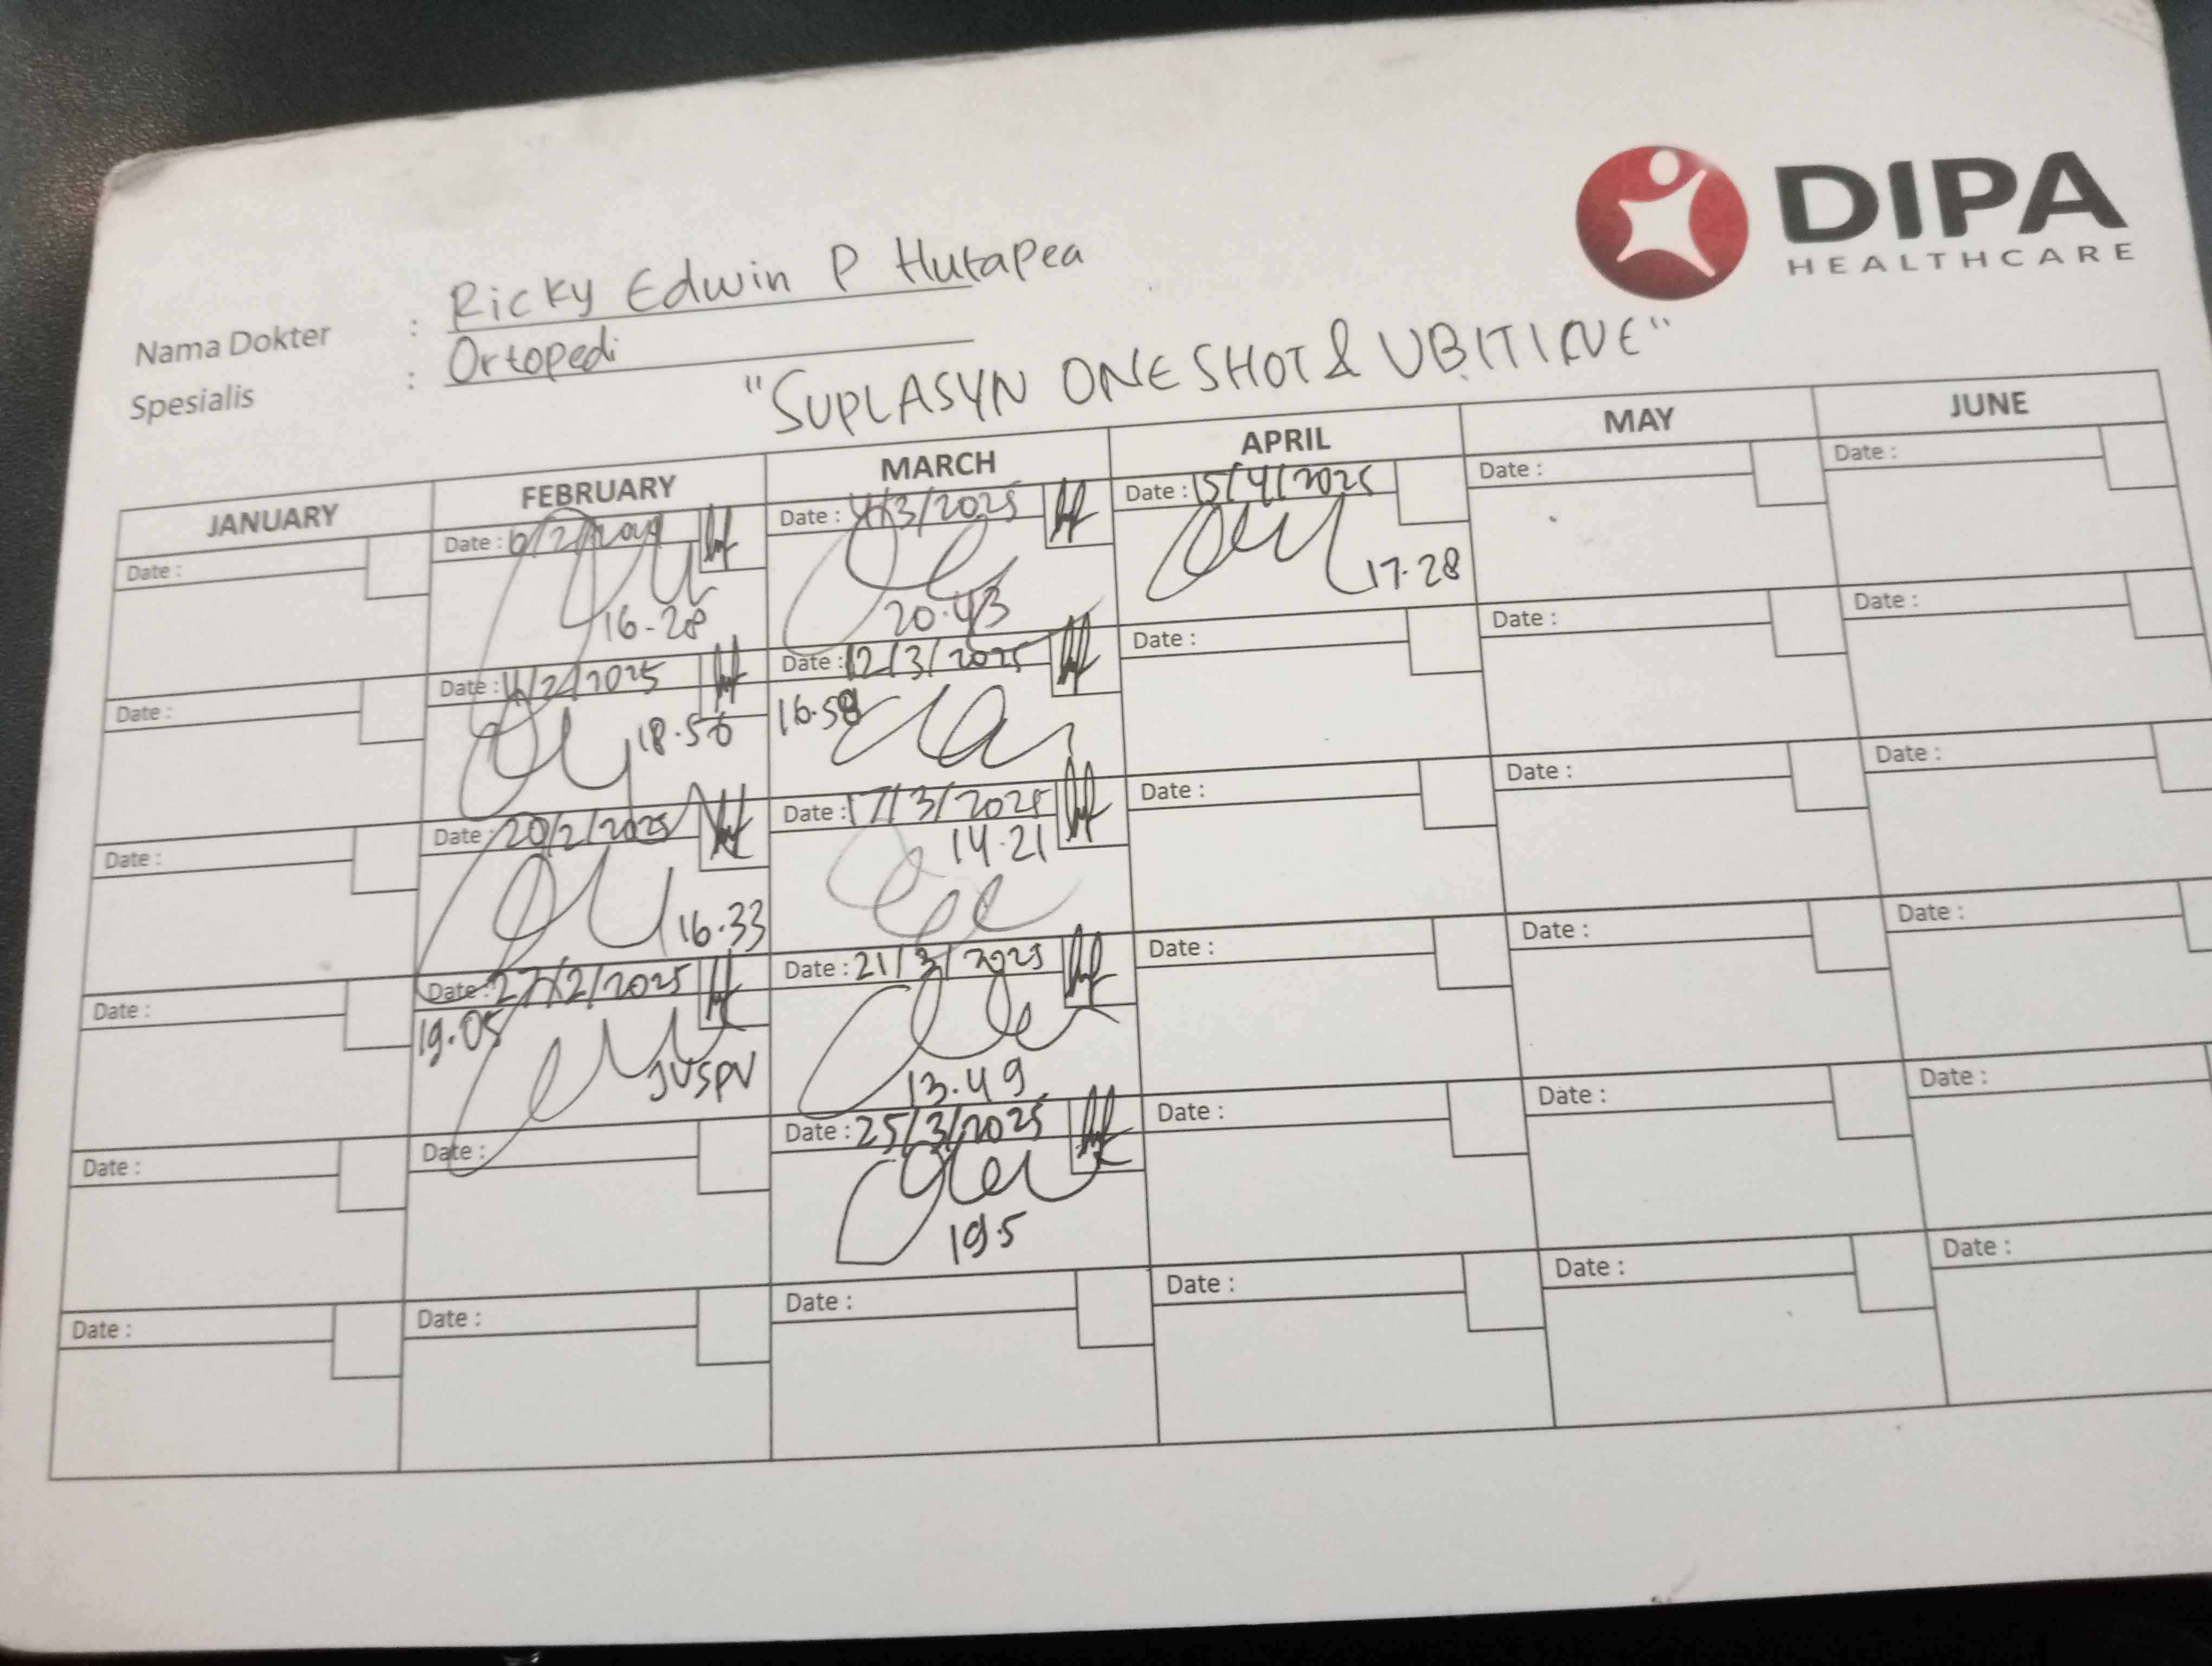 DIPA
HEALTHCARE
Nama Dokter : Ricky Edwin P Hutapea
Spesialis : Ortopedi
"SUPLASYN ONE SHOT &
JANUARY FEBRUARY MARCH APRIL MAY JUNE
Date : Date : 6/2/ Date : 4/3/2025 Date : 15/4/2025 Date : Date :
16-28 20.43 17.28
Date : Date : /2/2025 Date : 12/3/2025 Date : Date : Date :
18.56 16.58
Date : Date : 20/2/2025 Date : 17/3/2025 Date : Date : Date :
16.33 14.21
Date : Date : 27/2/2025 Date : 21/3/2025 Date : Date : Date :
19.05 JVSPV 13.49
Date : Date : Date : 25/3/2025 Date : Date : Date :
19.5
Date : Date : Date : Date : Date : Date :